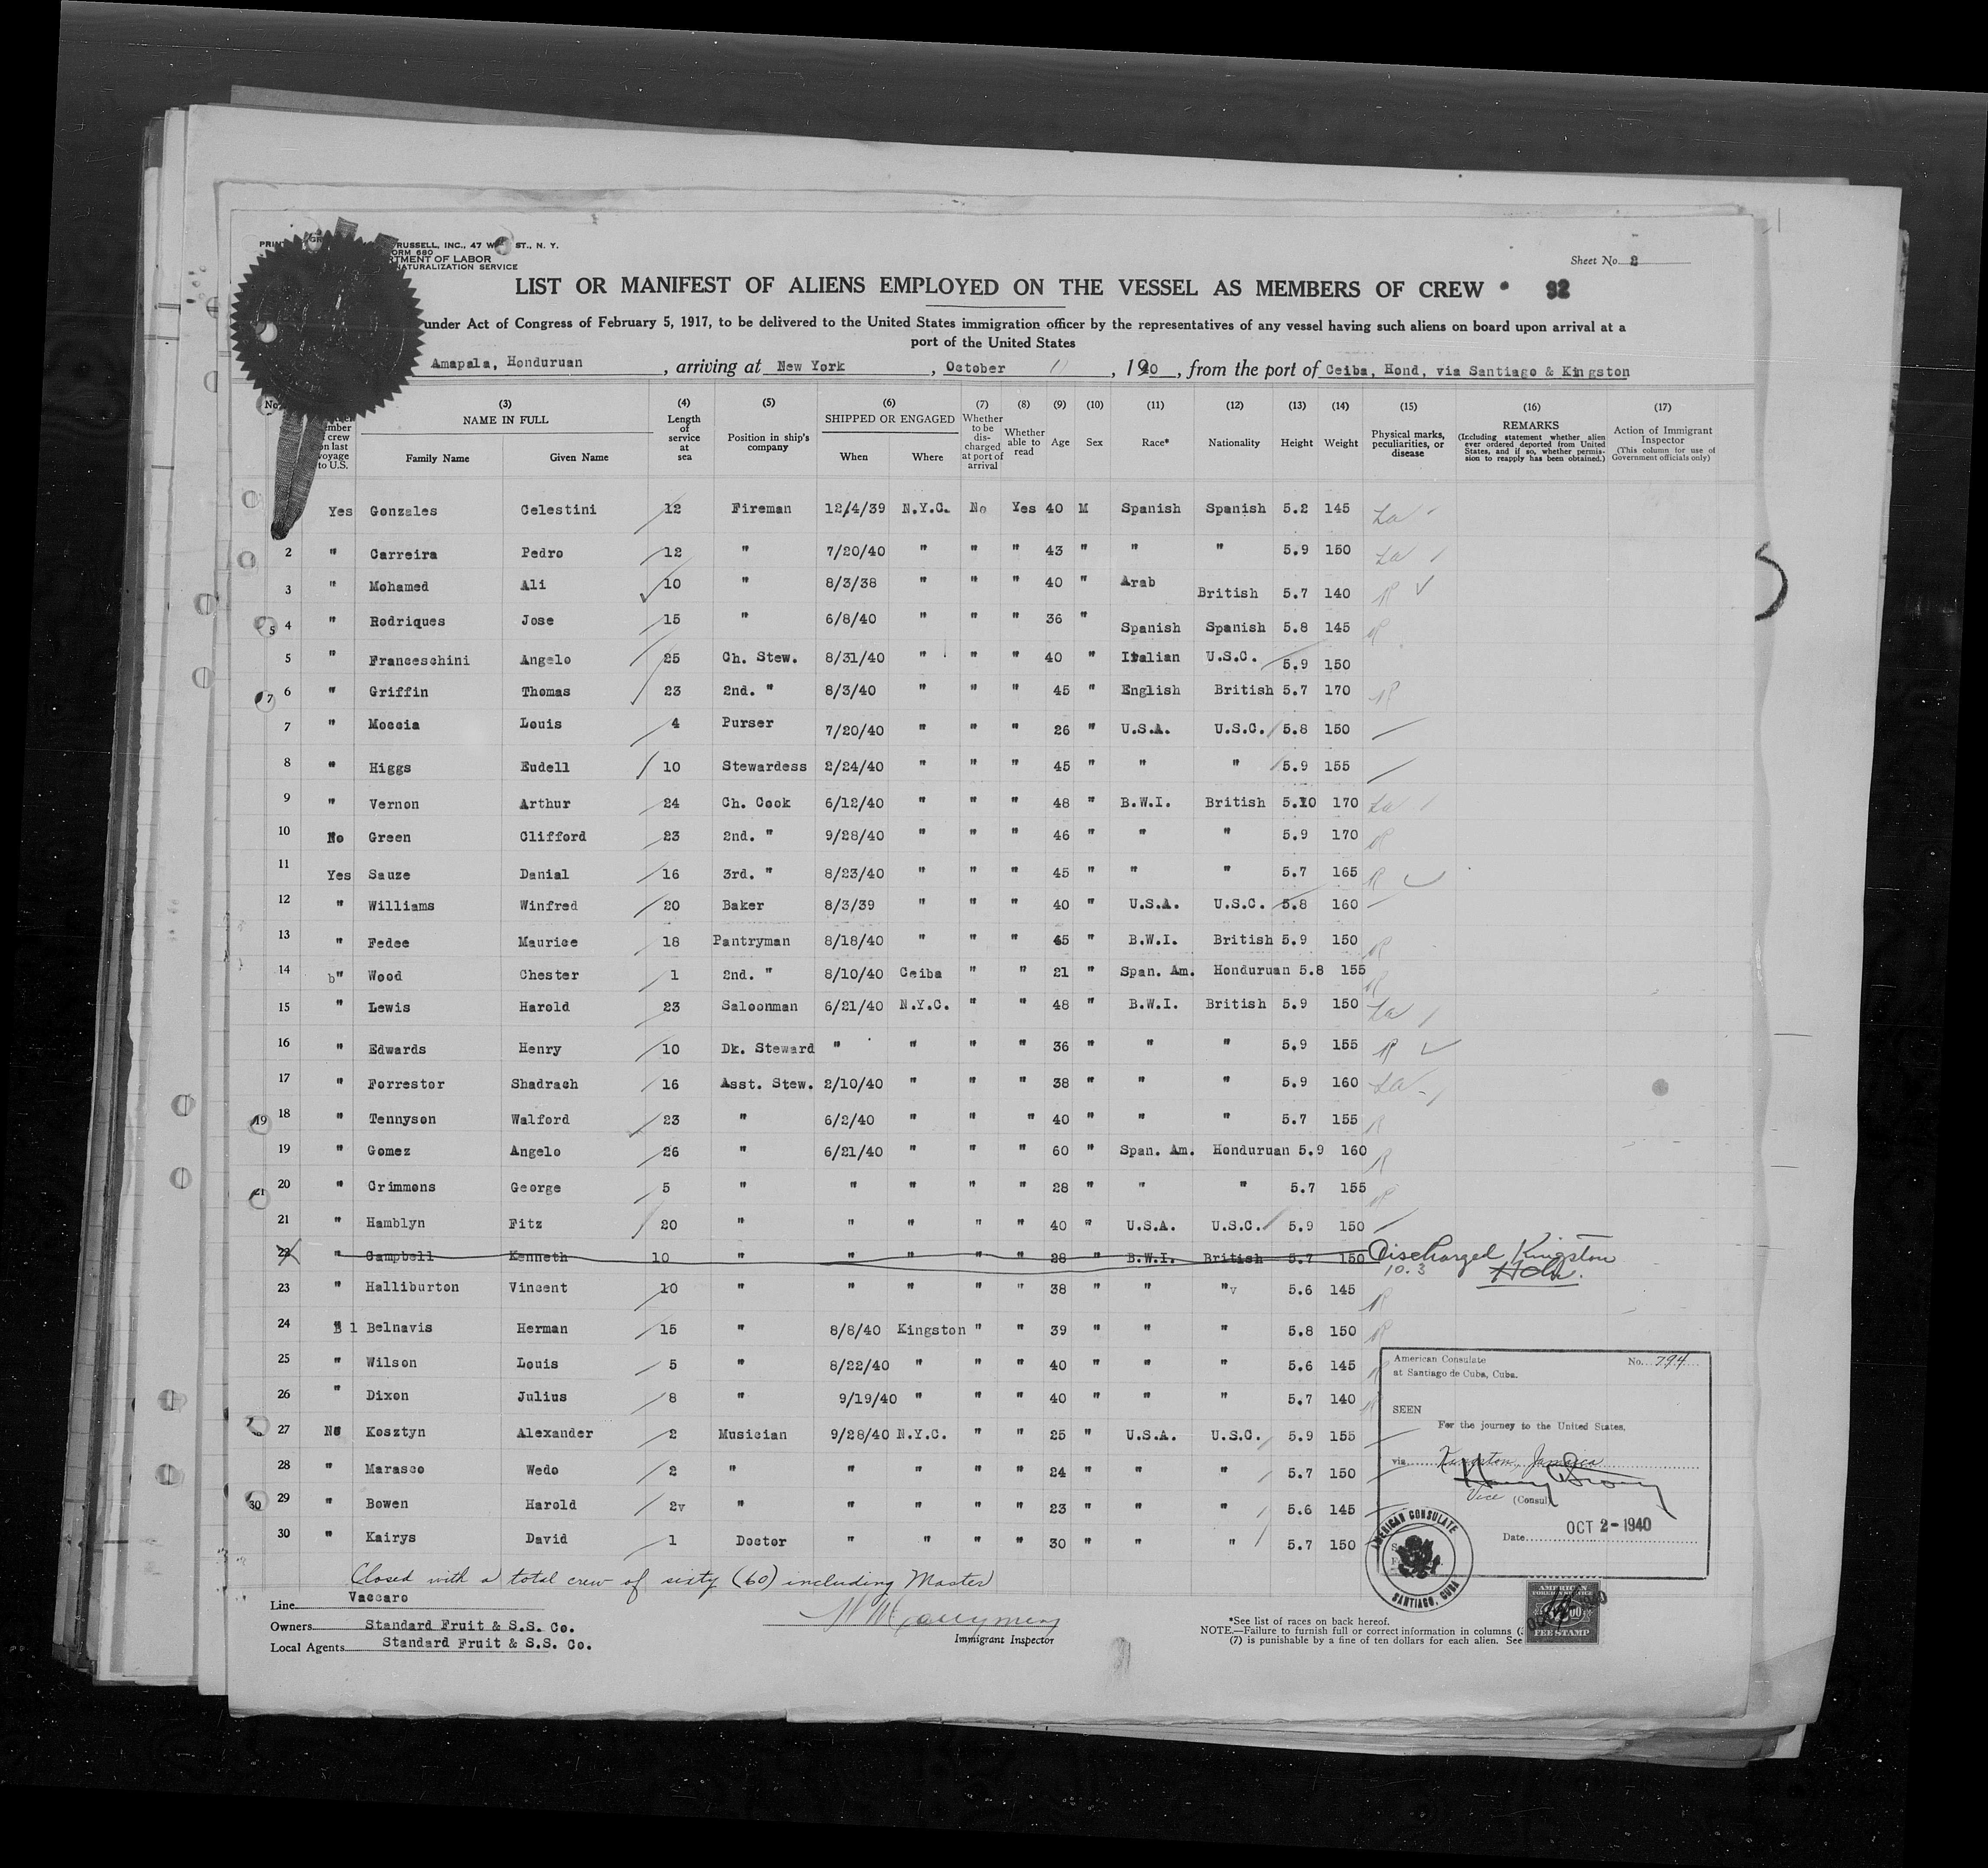 RUSSELL, INC., 47 W ST., N. Y.
ORM 680
TMENT OF LABOR
NATURALIZATION SERVICE
Sheet No. 2
LIST OR MANIFEST OF ALIENS EMPLOYED ON THE VESSEL AS MEMBERS OF CREW 92
under Act of Congress of February 5, 1917, to be delivered to the United States immigration officer by the representatives of any vessel having such aliens on board upon arrival at a
port of the United States
Amapala, Honduruan, arriving at New York, October 11, 1940, from the port of Ceiba, Hond, via Santiago & Kingston
No.
ember
crew
on last
voyage
to U.S.
(3)
NAME IN FULL
Family Name Given Name
(4)
Length
of
service
at
sea
(5)
Position in ship's
company
(6)
SHIPPED OR ENGAGED
When Where
(7)
Whether
to be
dis-
charged
at port of
arrival
(8)
Whether
able to
read
(9)
Age
(10)
Sex
(11)
Race*
(12)
Nationality
(13)
Height
(14)
Weight
(15)
Physical marks,
peculiarities, or
disease
(16)
REMARKS
(Including statement whether alien
ever ordered deported from United
States, and if so, whether permis-
sion to reapply has been obtained.)
(17)
Action of Immigrant
Inspector
(This column for use of
Government officials only)
Yes Gonzales Celestini 12 Fireman 12/4/39 N.Y.C. No Yes 40 M Spanish Spanish 5.2 145 La
2 " Carreira Pedro 12 " 7/20/40 " " " 43 " " " 5.9 150 La
3 " Mohamed Ali 10 " 8/3/38 " " " 40 " Arab British 5.7 140 R
5 4 " Rodriques Jose 15 " 6/8/40 " " " 36 " Spanish Spanish 5.8 145 R
5 " Franceschini Angelo 25 Ch. Stew. 8/31/40 " " " 40 " Italian U.S.C. 5.9 150
7 6 " Griffin Thomas 23 2nd. " 8/3/40 " " " 45 " English British 5.7 170 R
7 " Moccia Louis 4 Purser 7/20/40 " " " 26 " U.S.A. U.S.C. 5.8 150
8 " Higgs Eudell 10 Stewardess 2/24/40 " " " 45 " " " 5.9 155
9 " Vernon Arthur 24 Ch. Cook 6/12/40 " " " 48 " B.W.I. British 5.10 170 La
10 No Green Clifford 23 2nd. " 9/28/40 " " " 46 " " " 5.9 170 R
11 Yes Sauze Danial 16 3rd. " 8/23/40 " " " 45 " " " 5.7 165 R
12 " Williams Winfred 20 Baker 8/3/39 " " " 40 " U.S.A. U.S.C. 5.8 160
13 " Fedee Maurice 18 Pantryman 8/18/40 " " " 45 " B.W.I. British 5.9 150 R
14 " Wood Chester 1 2nd. " 8/10/40 Ceiba " " 21 " Span. Am. Honduruan 5.8 155 R
15 " Lewis Harold 23 Saloonman 6/21/40 N.Y.C. " " 48 " B.W.I. British 5.9 150 La
16 " Edwards Henry 10 Dk. Steward " " " " 36 " " " 5.9 155 R
17 " Forrestor Shadrach 16 Asst. Stew. 2/10/40 " " " 38 " " " 5.9 160 La
19 18 " Tennyson Walford 23 " 6/2/40 " " " 40 " " " 5.7 155 R
19 " Gomez Angelo 26 " 6/21/40 " " " 60 " Span. Am. Honduruan 5.9 160 R
21 20 " Crimmons George 5 " " " " " 28 " " " 5.7 155 R
21 " Hamblyn Fitz 20 " " " " " 40 " U.S.A. U.S.C. 5.9 150
22 " Campbell Kenneth 10 " " " " " 28 " B.W.I. British 5.7 150 Discharged Kingston
10.3
23 " Halliburton Vincent 10 " " " " " 38 " " " 5.6 145 R
24 " B 1 Belnavis Herman 15 " 8/8/40 Kingston " " 39 " " " 5.8 150 R
25 " Wilson Louis 5 " 8/22/40 " " " 40 " " " 5.6 145 R
26 " Dixon Julius 8 " 9/19/40 " " " 40 " " " 5.7 140 R
27 No Kosztyn Alexander 2 Musician 9/28/40 N.Y.C. " " 25 " U.S.A. U.S.C. 5.9 155
28 " Marasco Wedo 2 " " " " " 24 " " " 5.7 150
30 29 " Bowen Harold 2 " " " " " 23 " " " 5.6 145
30 " Kairys David 1 Doctor " " " " 30 " " " 5.7 150
American Consulate No. 794
at Santiago de Cuba, Cuba.
SEEN
For the journey to the United States,
via Kingston, Jamaica
Vice (Consul)
Date OCT 2-1940
AMERICAN CONSULATE
SANTIAGO, CUBA
AMERICAN
FOREIGN SERVICE
FEE STAMP
Closed with a total crew of sixty (60) including Master
Line Vaccaro
Owners Standard Fruit & S.S. Co.
Local Agents Standard Fruit & S.S. Co.
Immigrant Inspector
*See list of races on back hereof.
NOTE.—Failure to furnish full or correct information in columns
(7) is punishable by a fine of ten dollars for each alien. See